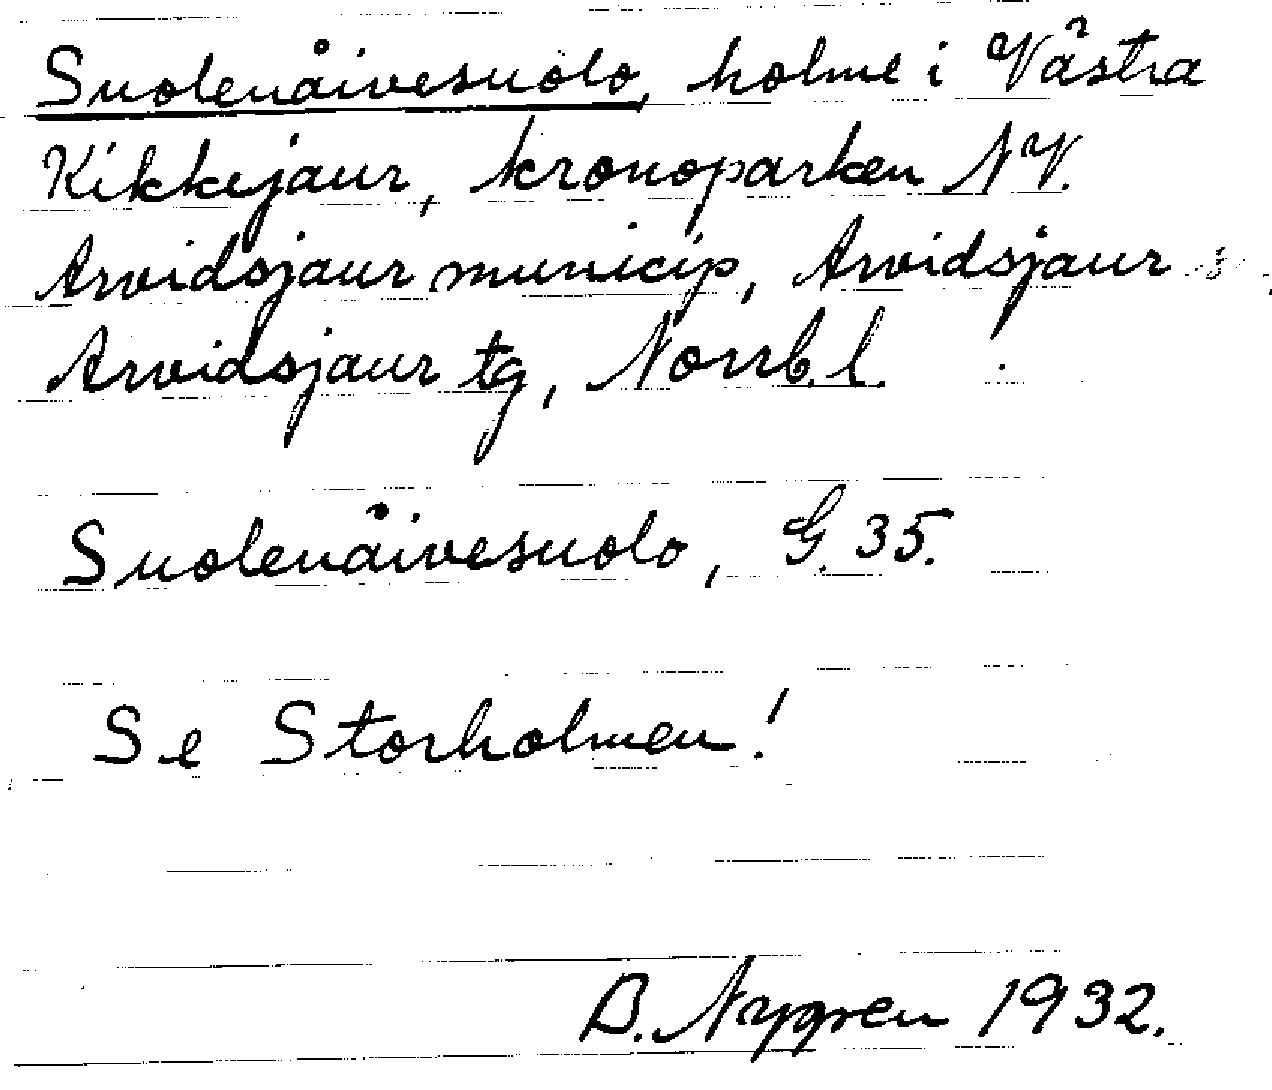 Suolenåivesuolo, holme i Västra
Kikkejaur, kronoparken NV.
Arvidsjaur municip, Arvidsjaur s.
Arvidsjaur tg, Norrb. l.
Suolenåivesuolo, G. 35.
Se Storholmen!
B. Nygren 1932.